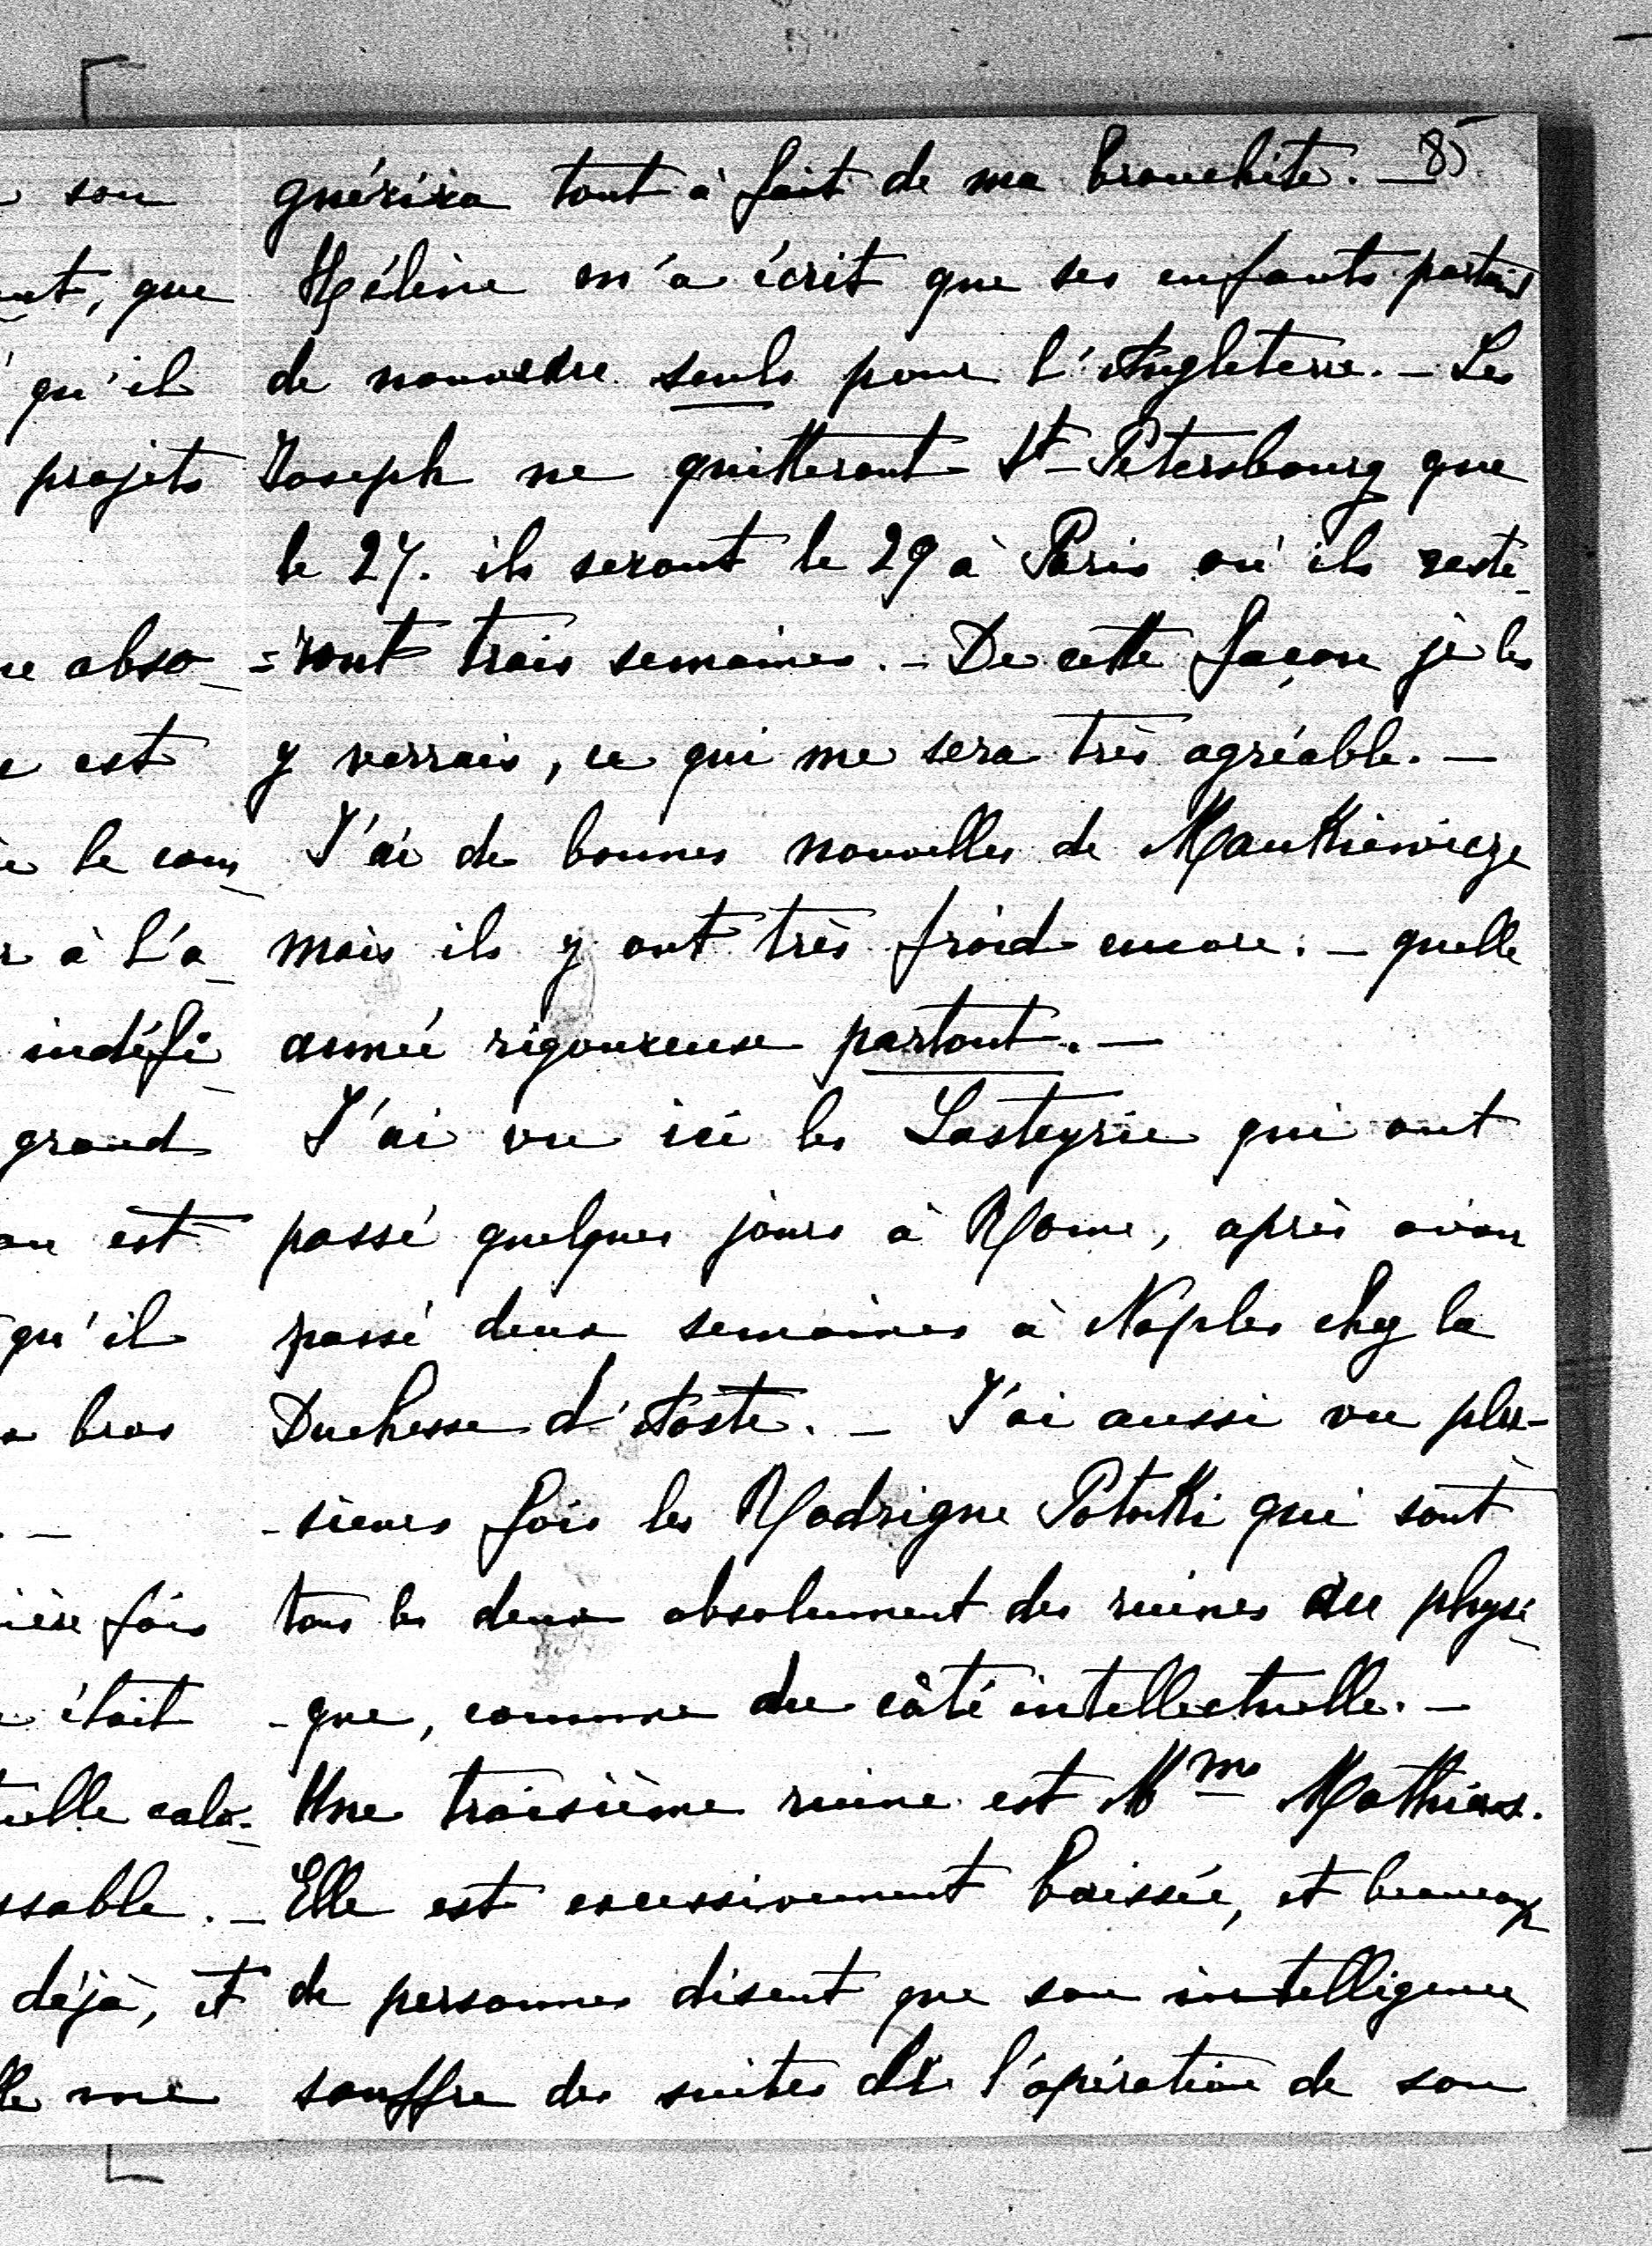 85
guérira tout à fait de ma bronchite. —
Hélène m'a écrit que ses enfants partent
de nouveau seuls pour l'Angleterre. — Les
Joseph ne quitteront St-Pétersbourg que
le 27. ils seront le 29 à Paris où ils reste-
=ront trois semaines. — De cette façon je les
y verrais, ce qui me sera très agréable. —
J'ai de bonnes nouvelles de Mankiewicze
mais ils y ont très froid encore. — quelle
année rigoureuse partout. —
J'ai vu ici les Lasteyrie qui ont
passé quelques jours à Rome, après avoir
passé deux semaines à Naples chez la
Duchesse d'Aoste. — J'ai aussi vu plu-
-sieurs fois les Rodrigue Potocki qui sont
tous les deux absolument des ruines au physi-
-que, comme du côté intellectuelle. —
Une troisième ruine est Mme Mathias.
Elle est excessivement baissée, et beaucoup
de personnes disent que son intelligence
souffre des suites de l'opération de son
son
que
qu'il
projets
abso-
est
le cou-
à l'a-
indéfi-
grand
est
qu'il
bras
fois
était
déjà, et
me